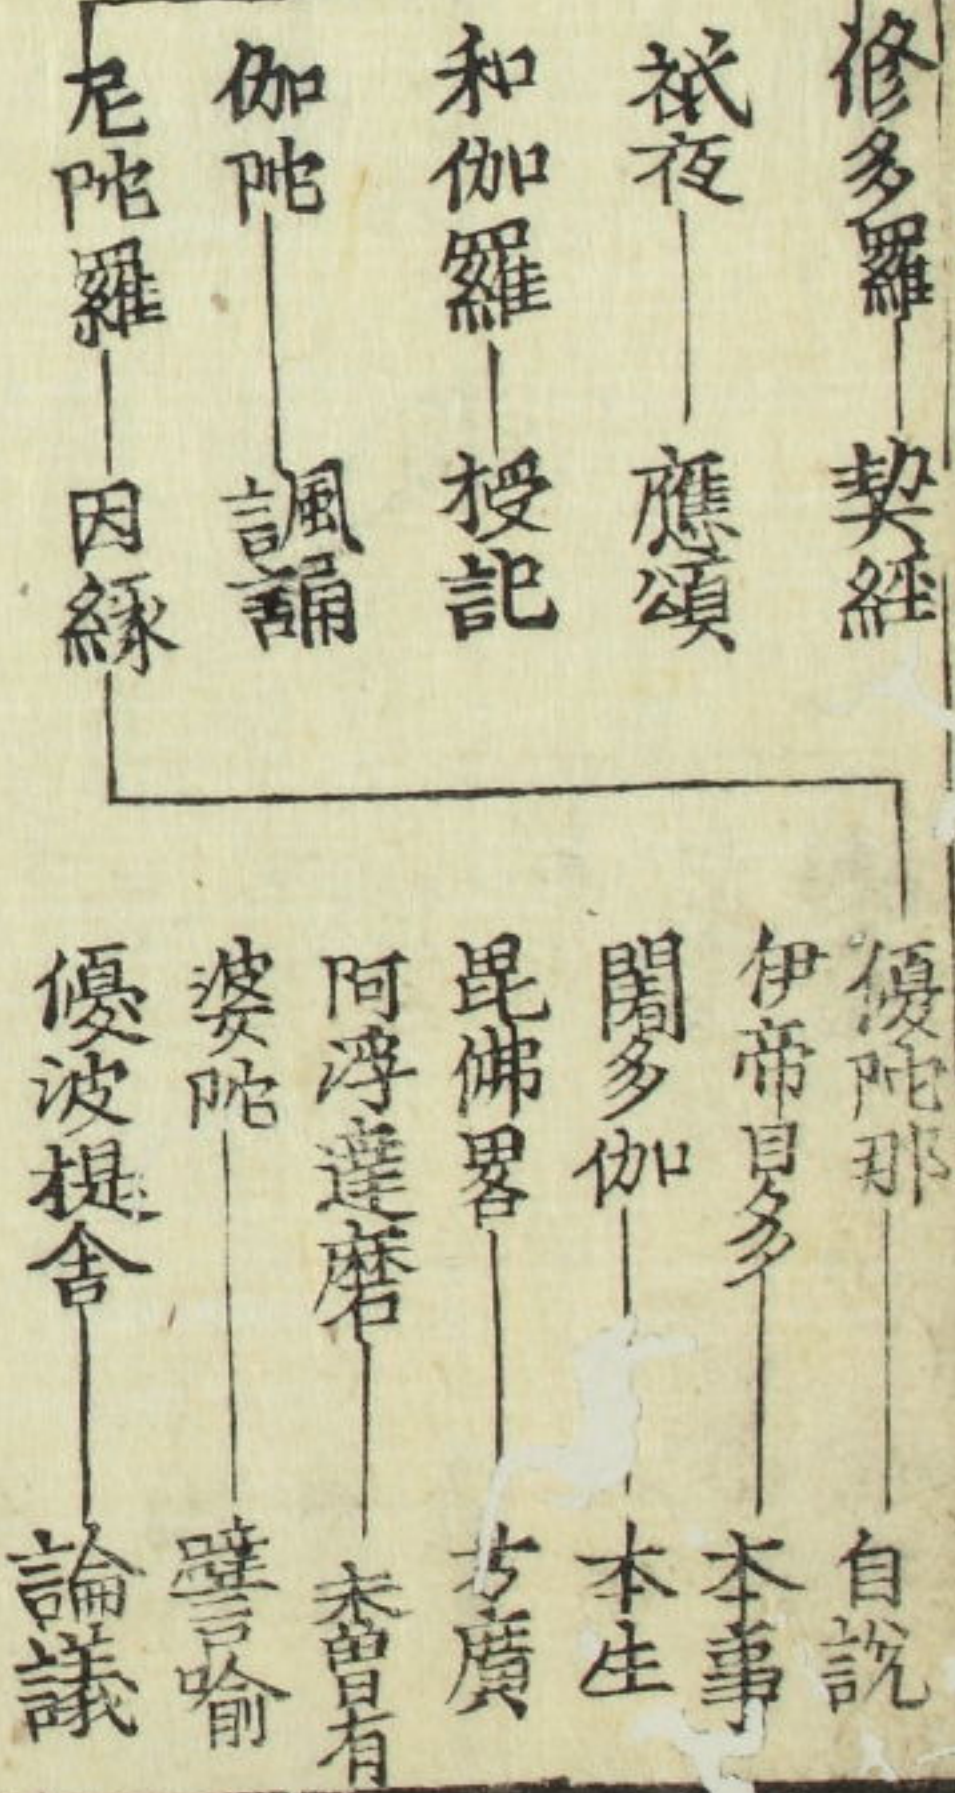 修多羅 契經
祇夜 應頌
和伽羅 授記
伽陀 諷誦
尼陀羅 因緣
優陀那 自說
伊帝目多 本事
闍多伽 本生
毘佛畧 方廣
阿浮達磨 未曾有
婆陀 譬喻
優波提舍 論議